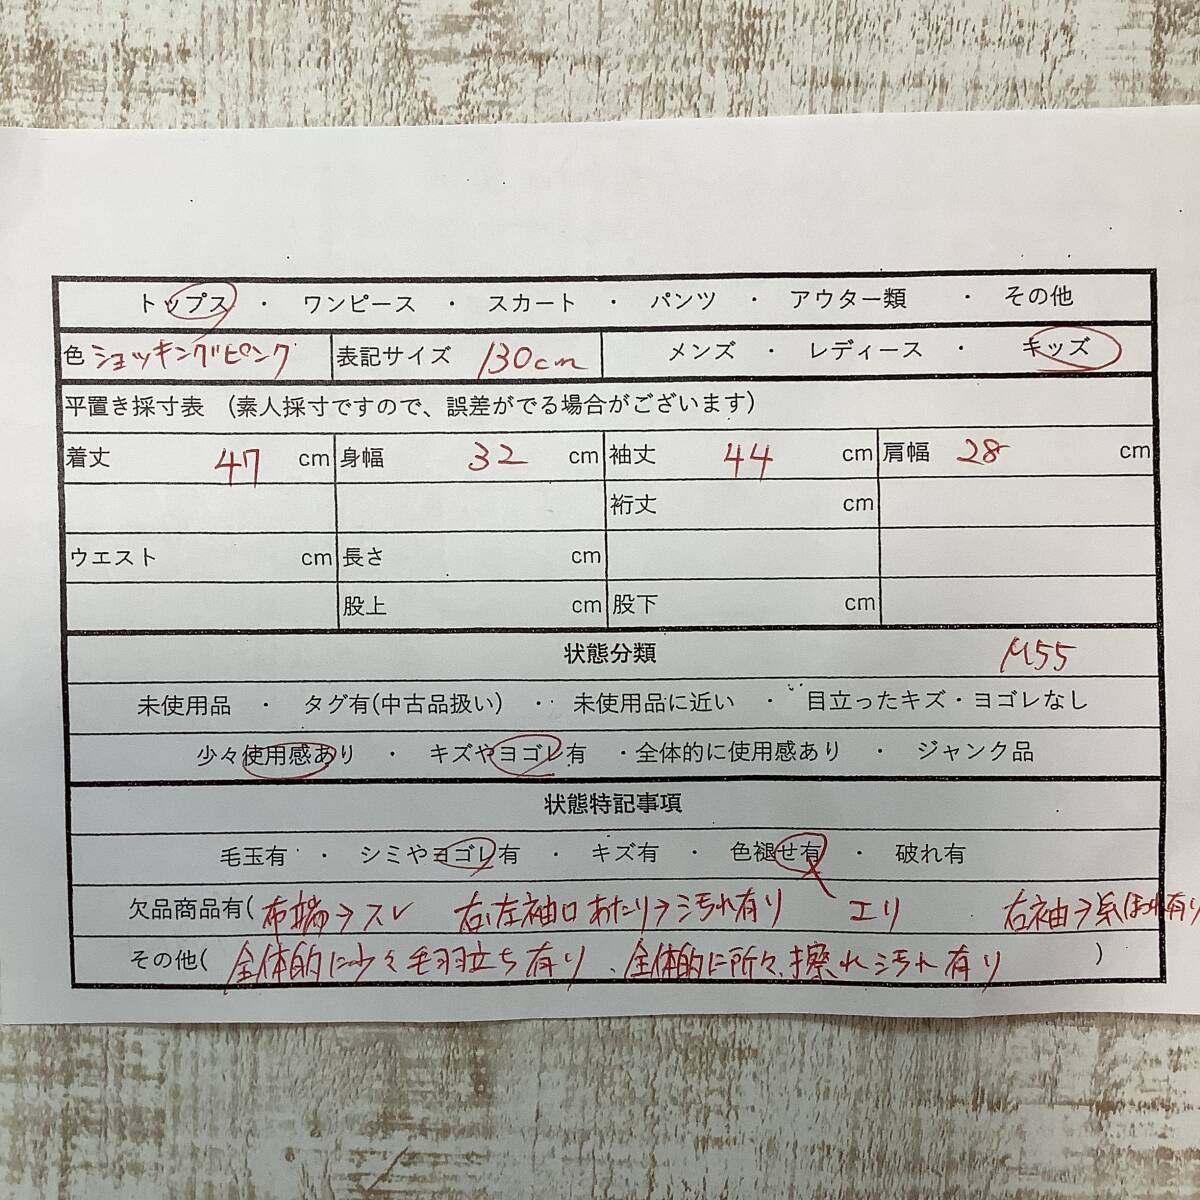 トップス ・ ワンピース ・ スカート ・ パンツ ・ アウター類 ・ その他
色 ショッキングピンク 表記サイズ 130cm メンズ ・ レディース ・ キッズ
平置き採寸表 (素人採寸ですので、誤差がでる場合がございます)
着丈 47 cm 身幅 32 cm 袖丈 44 cm 肩幅 28 cm
裄丈 cm
ウエスト cm 長さ cm
股上 cm 股下 cm
状態分類 M55
未使用品 ・ タグ有(中古品扱い) ・ 未使用品に近い ・ 目立ったキズ・ヨゴレなし
少々使用感あり ・ キズやヨゴレ有 ・全体的に使用感あり ・ ジャンク品
状態特記事項
毛玉有 ・ シミやヨゴレ有 ・ キズ有 ・ 色褪せ有 ・ 破れ有
欠品商品有( 布端→スレ 右、左袖口あたり→汚れ有り エリ 右袖→糸ほつれ有り
その他( 全体的に少々毛羽立ち有り、全体的に所々、擦れ汚れ有り )